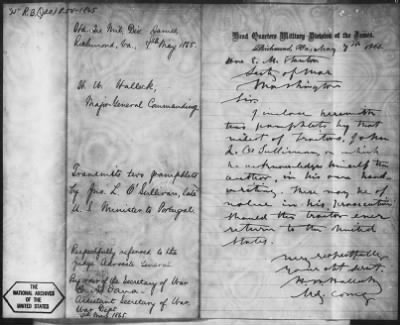 W. R.B. (Jao) 850-1865
Hd. Qrs. Mil. Div. James
Richmond, Va., 7th May 1865.
H. W. Halleck,
Major General Commanding
Transmits two pamphlets
by Jno. L. O'Sullivan, late
U. S. Minister to Portugal
Respectfully referred to the
Judge Advocate General
By order of the Secretary of War
C. A. Dana
Assistant Secretary of War
War Dept.
May 1865
THE
NATIONAL ARCHIVES
OF THE
UNITED STATES
Head Quarters Military Division of the James,
Richmond, Va., May 7th 1865.
Hon E. M. Stanton
Secty of War
Washington
Sir,
I enclose herewith
two pamphlets by that
vilest of traitors, John
L. O'Sullivan, on which
he acknowledges himself the
author, in his own hand
writing. These may be of
value in his prosecution
should the traitor ever
return to the United
States.
Very respectfully
Your obt servt.
H. W. Halleck
Maj. Genl